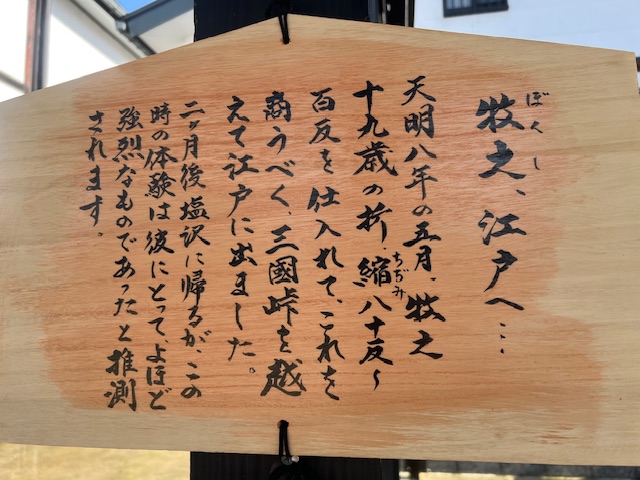 牧之、江戸へ…
ぼくし
天明八年の五月、牧之
十九歳の折、縮八十反〜
ちぢみ
百反を仕入れて、これを
商うべく、三國峠を越
えて江戸に出ました。
二ヶ月後塩沢に帰るが、この
時の体験は彼にとって、よほど
強烈なものであったと推測
されます。